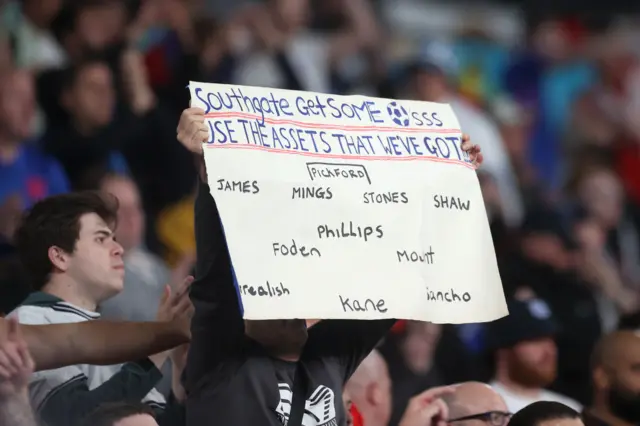 SOUTHGATE GET SOME ⚽SSS
USE THE ASSETS THAT WE'VE GOT!
PICKFORD
JAMES MINGS STONES SHAW
PHILLIPS
FODEN MOUNT
realish Kane ancho